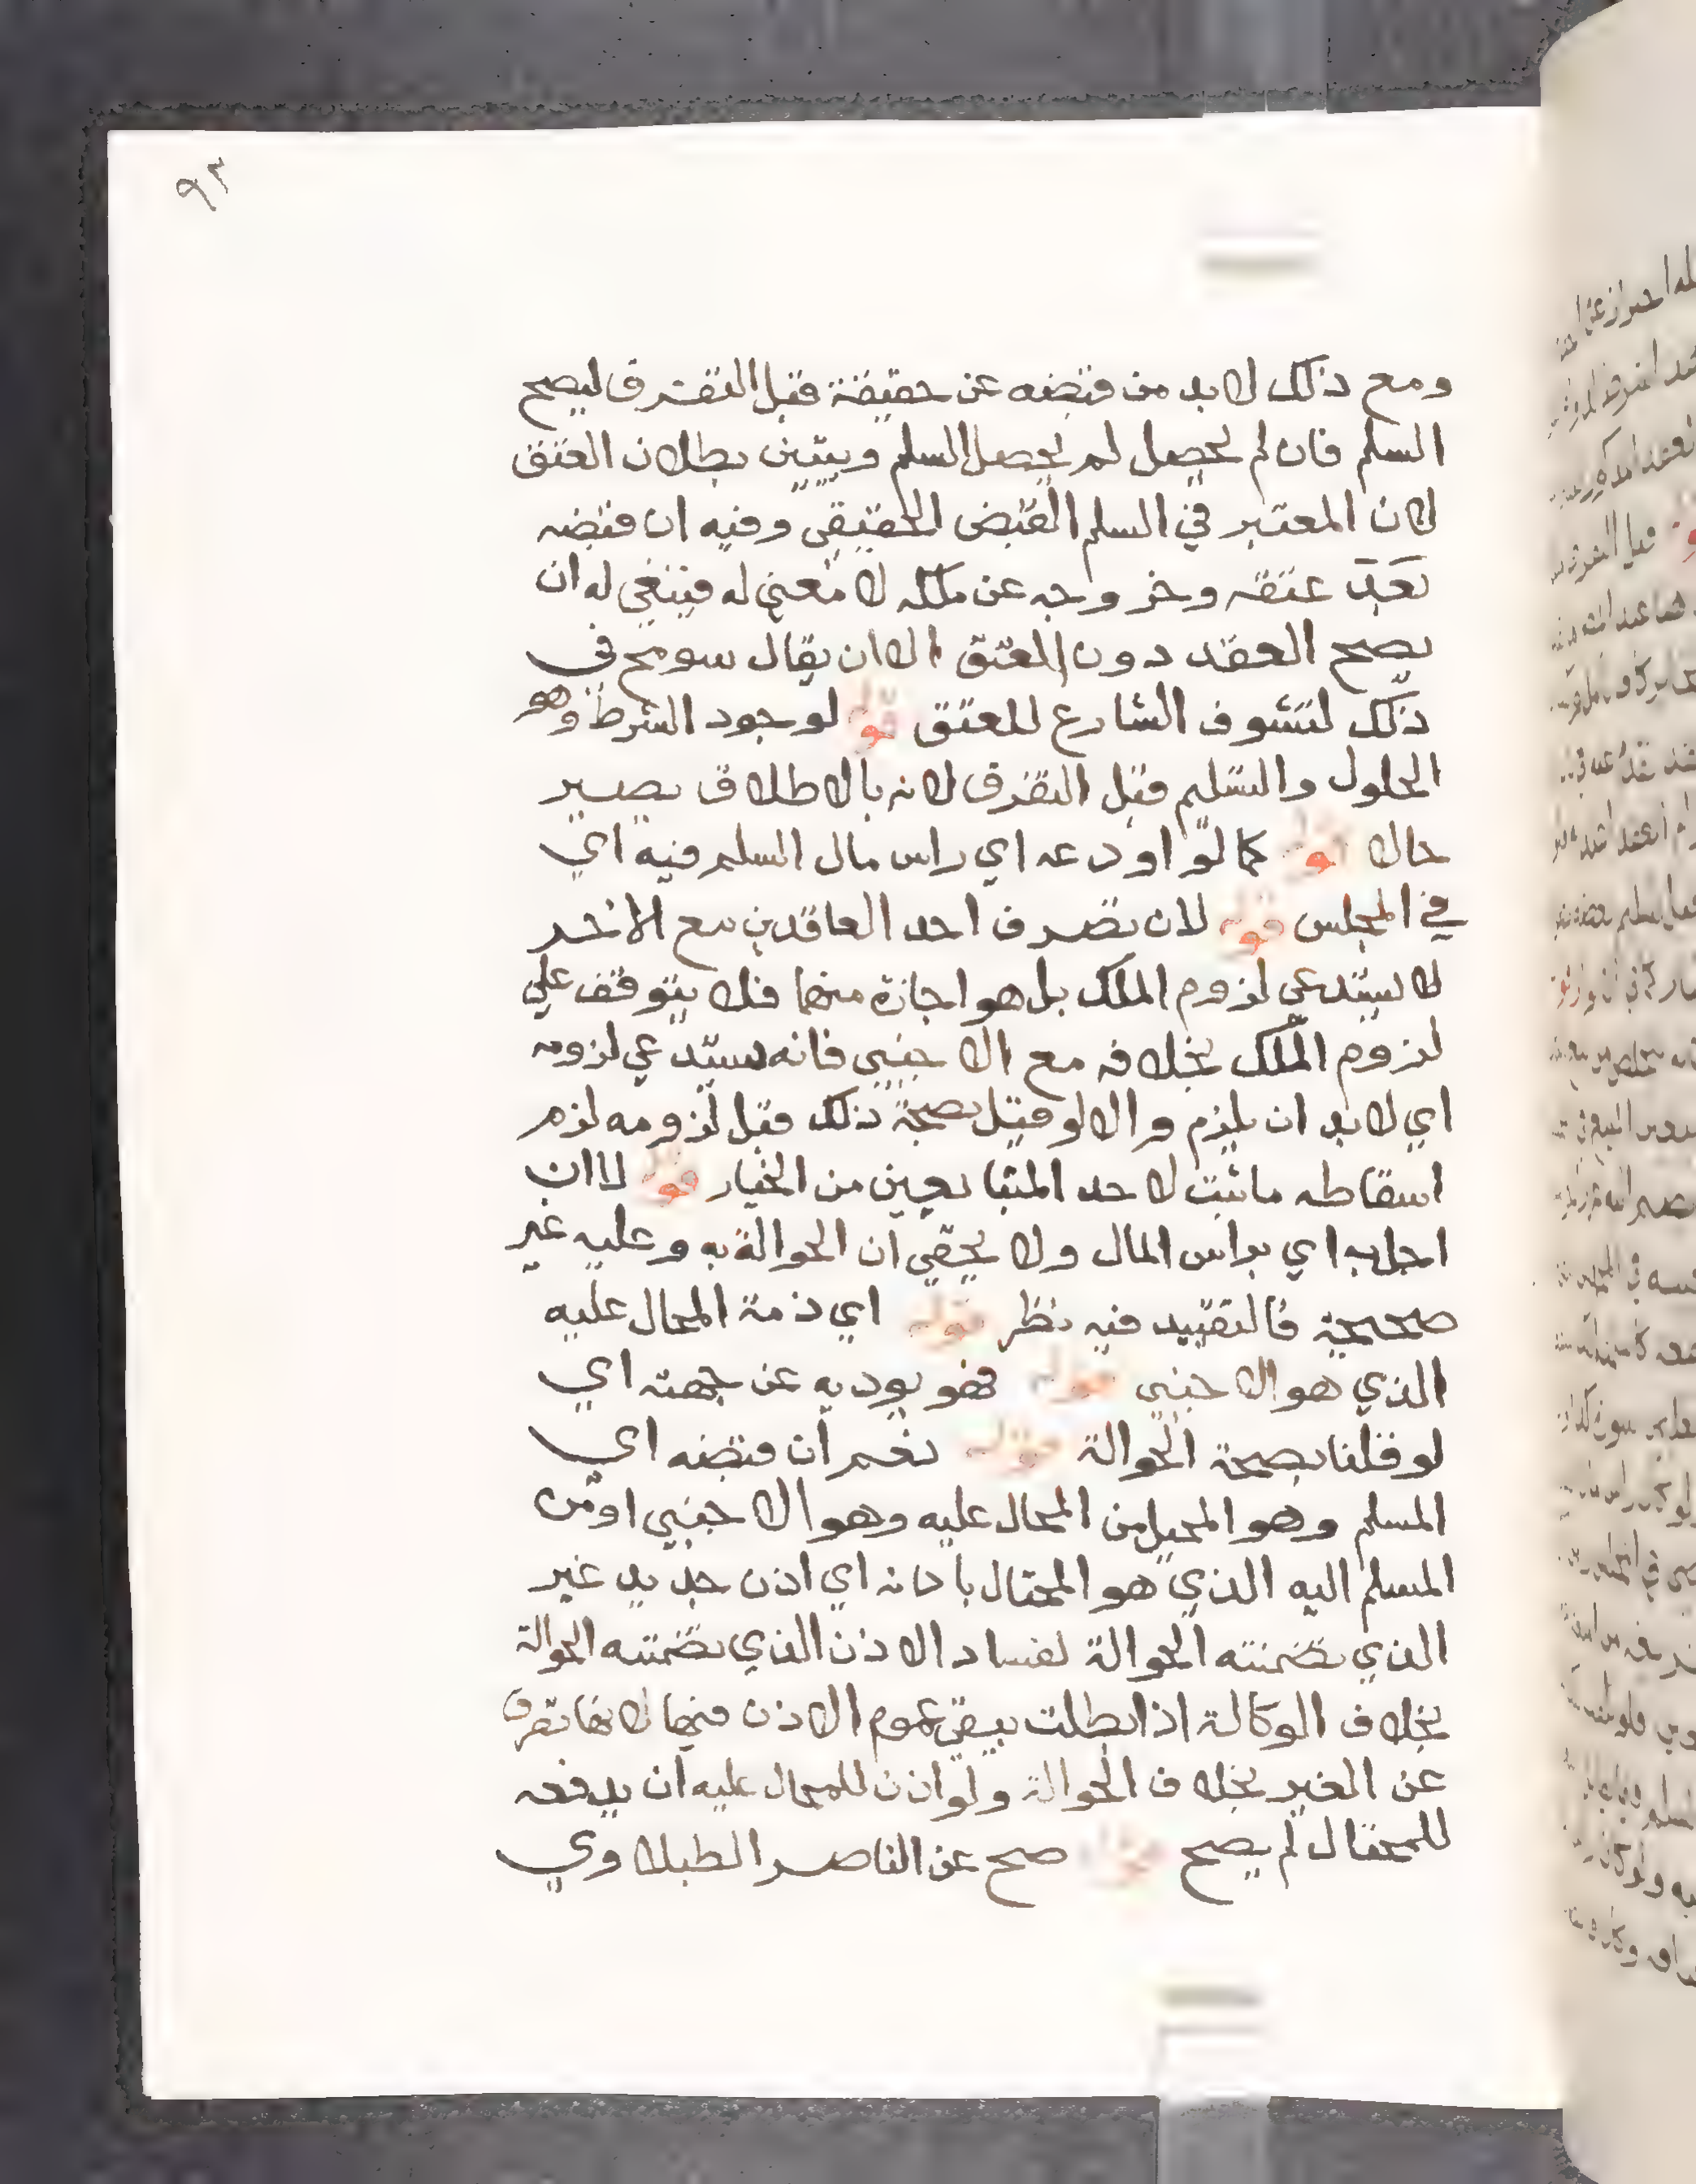 ٩٣
ومع ذلك لابد من قبضه عن حقيقة قبل التفرق ليصح
السلم فان لم يحصل لم يحصل السلم ويتبين بطلان العتق
لان المعتبر في السلم القبض الحقيقي وفيه ان قبضه
بعد عتقه وخروجه عن ملكه لا معني له فينبغي له ان
يصح العقد دون العتق الا ان يقال سومح في
ذلك لتشوف الشارع للعتق قوله لوجود الشرط وهو
الحلول والتسليم قبل التفرق لانه بالاطلاق يصير
حالا قوله كما لو اودعه اي راس مال السلم فيه اي
في المجلس قوله لان تصرف احد العاقدين مع الاخر
لا يستدعي لزوم الملك بل هو اجازة منهما فلا يتوقف علي
لزوم الملك بخلافه مع الاجنبي فانه يستدعي لزومه
اي لابد ان يلزم والا لو قيل بصحة ذلك قبل لزومه لزم
اسقاطه ما ثبت لاحد المتبايعين من الخيار قوله لا ان
احل به اي براس المال ولا يخفي ان الحوالة به وعليه غير
صحيحة فالتقييد فيه نظر قوله اي ذمة المحال عليه
الذي هو الاجنبي قوله فهو يوديه عن جهته اي
لو قلنا بصحة الحوالة قوله نعم ان قبضه اي
المسلم وهو المحيل من المحال عليه وهو الاجنبي او من
المسلم اليه الذي هو المحتال باذنه اي اذن جديد غير
الذي تضمنته الحوالة لفساد الاذن الذي تضمنته الحوالة
بخلاف الوكالة اذا بطلت يبقي عموم الاذن فيها لانها تصرف
عن الغير بخلاف الحوالة ولو اذن للمحال عليه ان يدفعه
للمحتال لم يصح قوله صح عن الناصر الطبلاوي